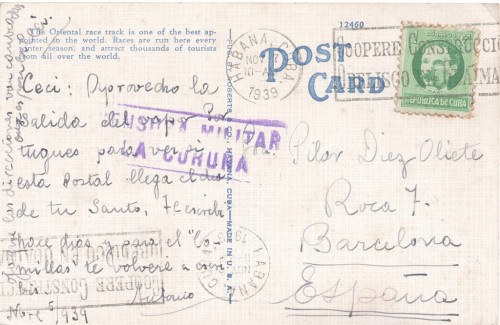 The Oriental race track is one of the best ap-
pointed in the world. Races are run here every
winter season, and attract thousands of tourists
from all over the world.
12460
POST
CARD
HABANA, CUBA
NOV 7
1939
COOPERE CONSTRUCCIO
OBELISCO
REPUBLICA DE CUBA
Ceci: Aprovecho la
salida del vapor Por
tugues para ver si
esta postal llega el dia
de tu Santo, Te escribi
hace dias y para el "Co
millas te volveré a escri
bir.
Antonio
Nbre 6
1939
CENSURA MILITAR
LA CORUÑA
Pilar Diez Oliete
Roca 7.
Barcelona
España
ROBERTS & CO., HAVANA, CUBA—MADE IN U. S. A.
HABANA
COOPERE CONSTRUCC